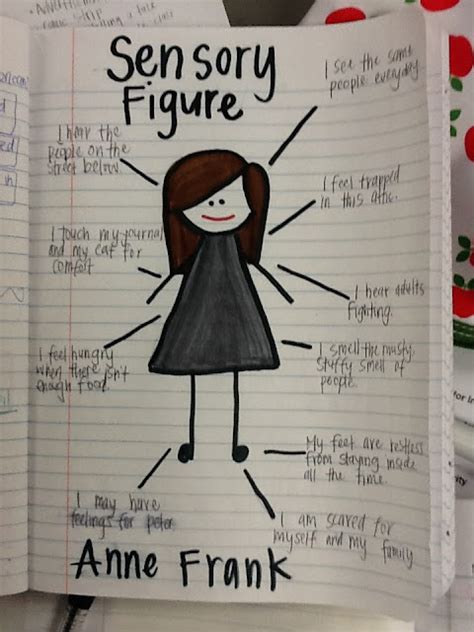 Sensory
Figure
I see the same
people everyday.
I hear the
people on the
street below.
I feel trapped
in this attic.
I touch my journal
and my cat for
comfort
I hear adults
Fighting.
I feel hungry
when there isn't
enough food.
I smell the musty,
Stuffy smell of
people.
My feet are restless
from staying inside
all the time.
I may have
feelings for peter
I am scared for
myself and my family
Anne Frank